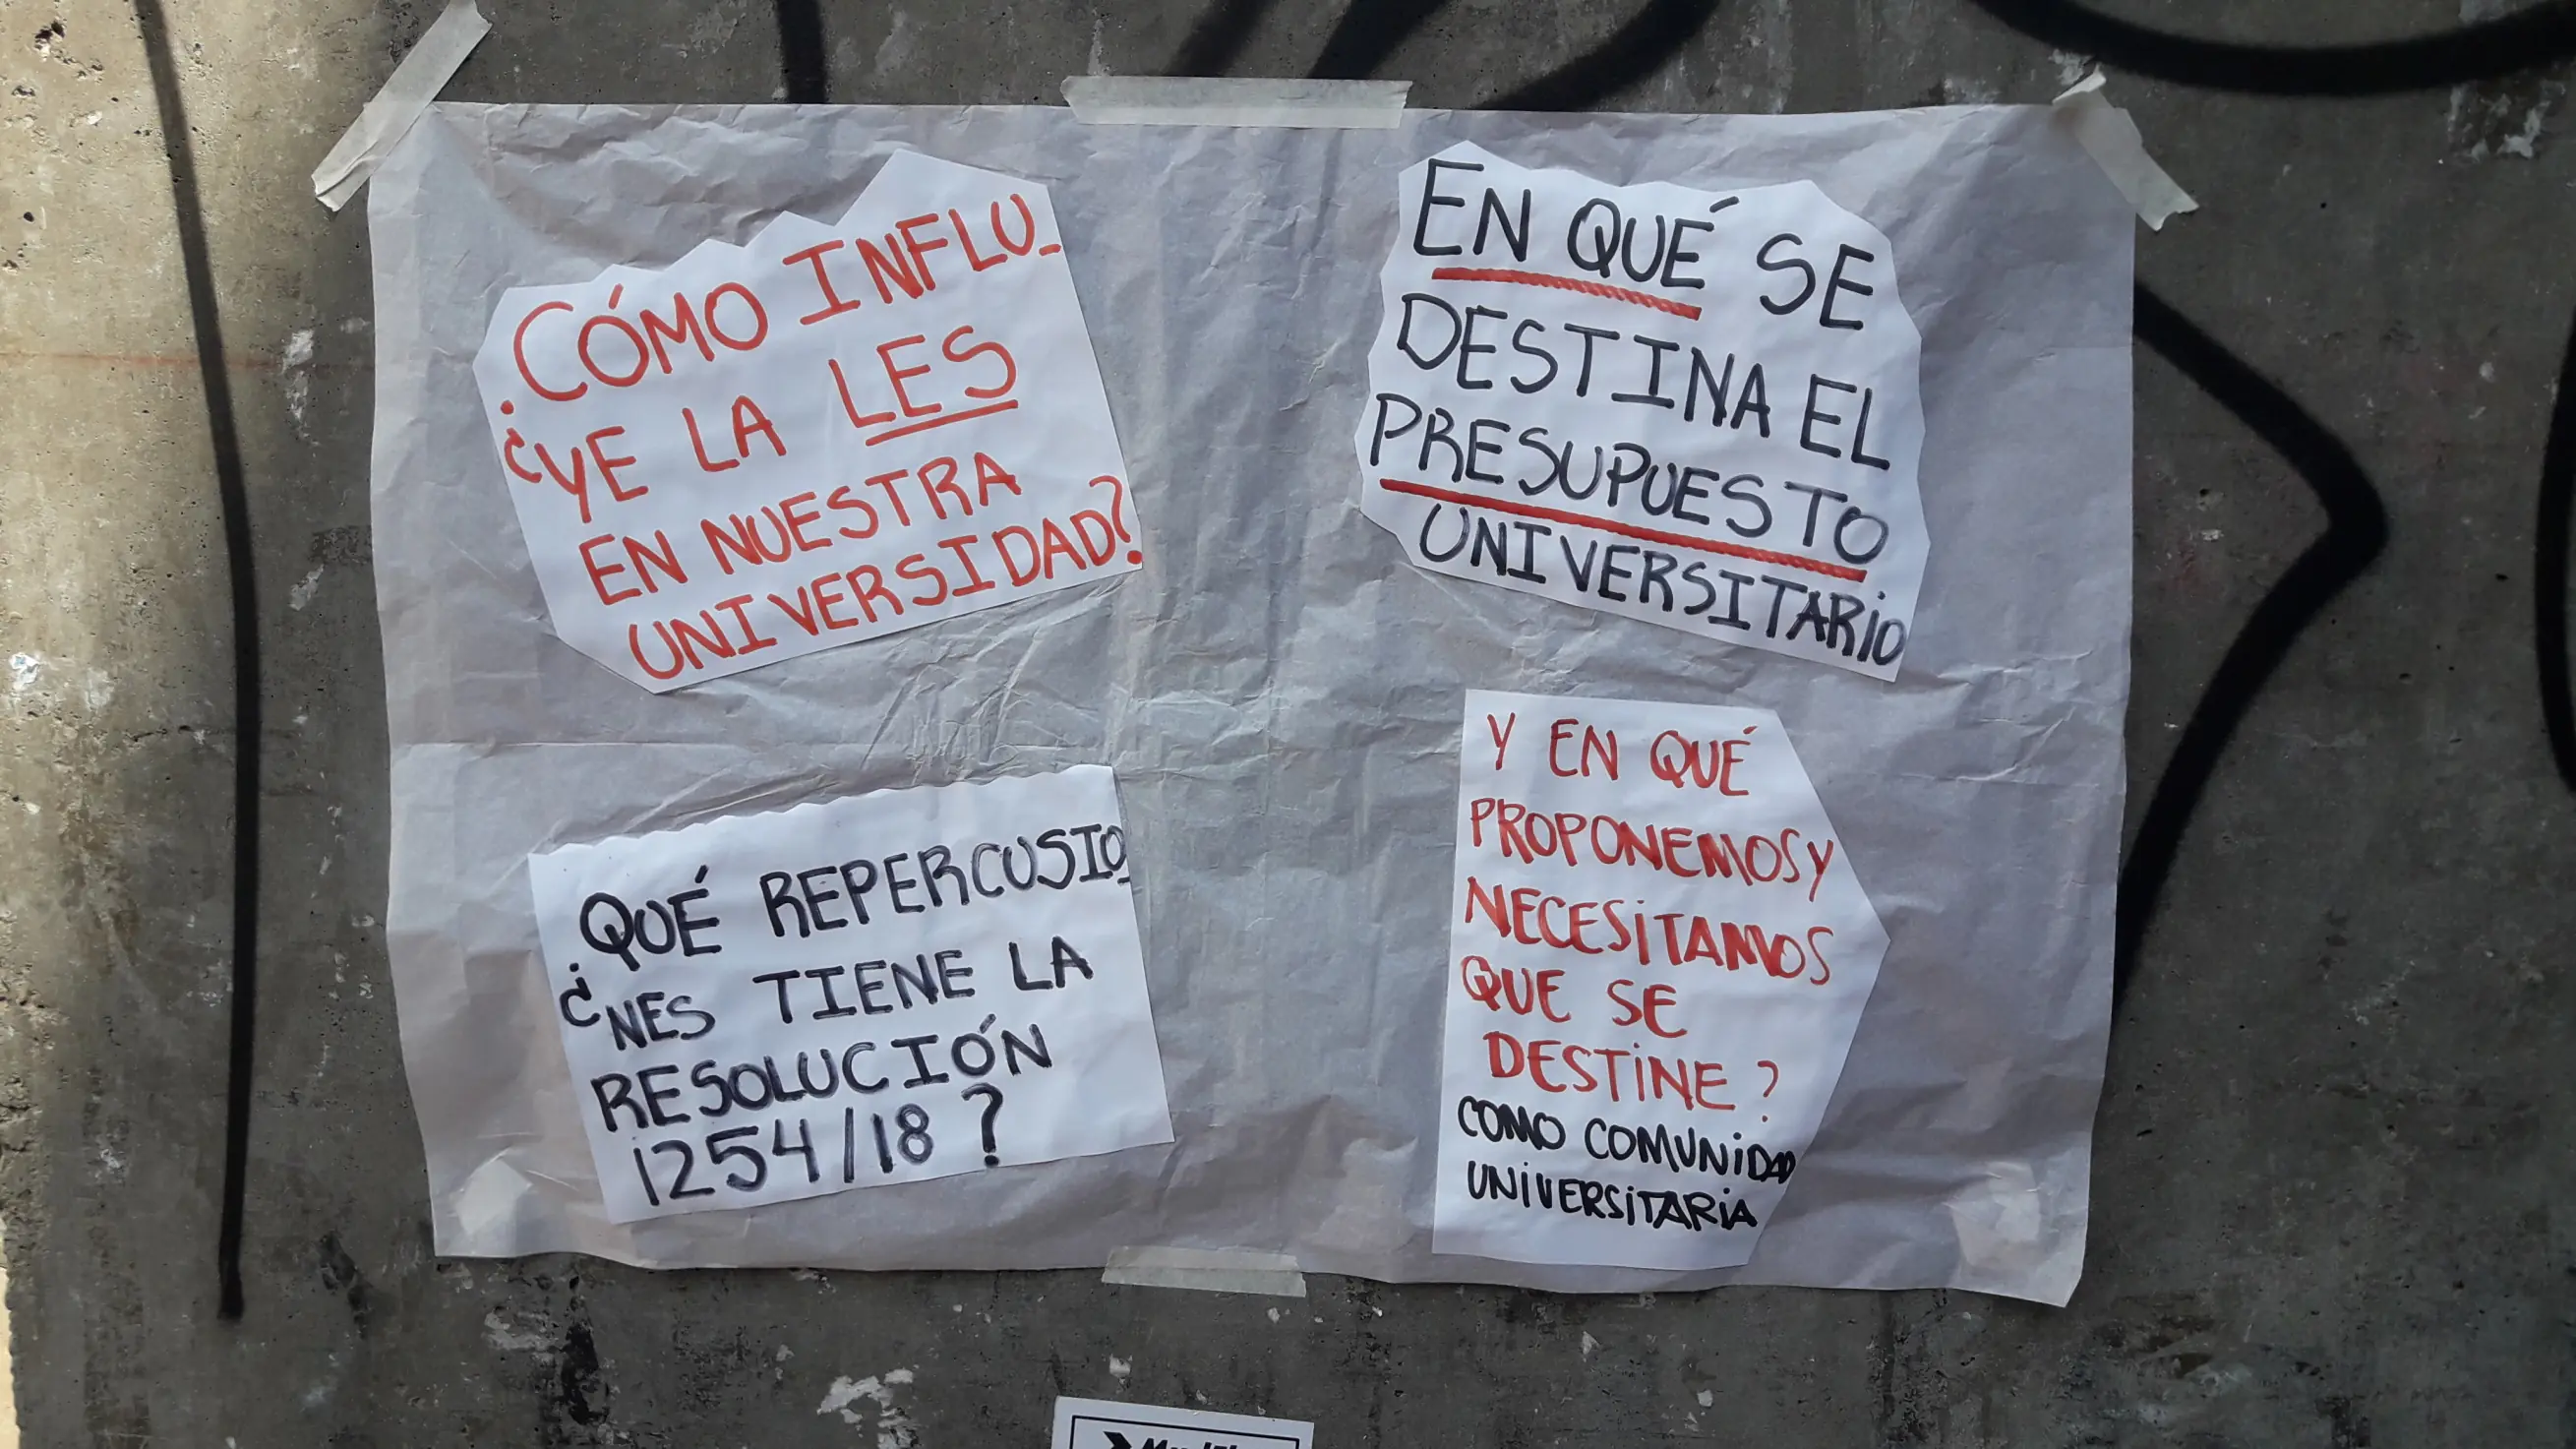 ¿CÓMO INFLU-
YE LA LES
EN NUESTRA
UNIVERSIDAD?
EN QUÉ SE
DESTINA EL
PRESUPUESTO
UNIVERSITARIO
¿QUÉ REPERCUSIO
NES TIENE LA
RESOLUCIÓN
1254/18?
Y EN QUÉ
PROPONEMOS Y
NECESITAMOS
QUE SE
DESTINE?
COMO COMUNIDAD
UNIVERSITARIA